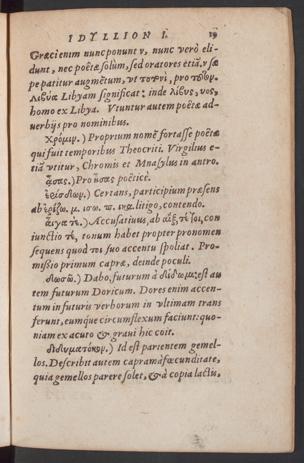 IDYLLION I. 19
Græci enim nunc ponunt ν, nunc verò eli-
dunt, nec poëtæ solùm, sed oratores etiā. v sæ
pe patitur augmētum, vt
Λιβύα Libyam significat: inde λίβυς, vos,
homo ex Libya. Vtuntur autem poëtæ ad-
uerbijs pro nominibus.
Χρόμιν.) Proprium nomē fortasse poëtæ
qui fuit temporibus Theocriti. Virgilius e-
tiā vtitur, Chromis et Mnasylus in antro.
ᾆσας.) Pro poëticè.
ἐρίσδων.) Certans, participium præsens
ab ἐρίζω. μ. ισω. π. ικα. litigo, contendo.
αἶγα τέ.) Accusatiuus, ab αἲξ, τὲ ſοι, con
iunctio τέ, tonum habet propter pronomen
sequens quod τοι suo accentu spoliat. Pro-
missio primum capræ, deinde poculi.
δωσῶ.) Dabo, futurum à δίδωμι: est au
tem futurum Doricum. Dores enim accen-
tum in futuris verborum in vltimam trans
ferunt, eumque circumflexum faciunt: quo-
niam ex acuto & graui hic coit.
διδυματόκον.) Id est parientem gemel-
los. Describit autem capram à fœcunditate,
quia gemellos parere solet, & à copia lactis,